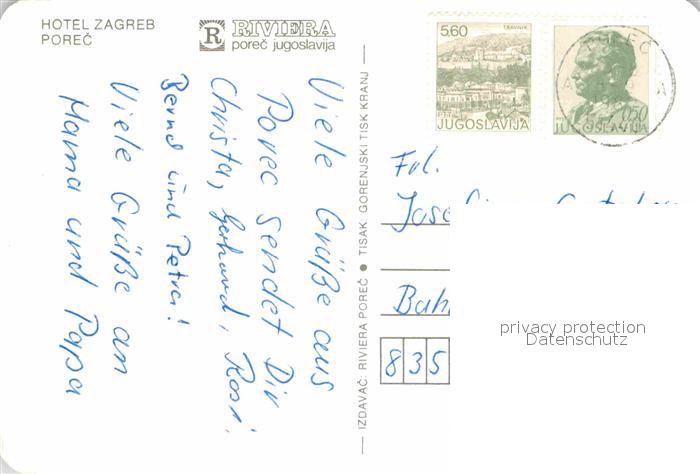 HOTEL ZAGREB
POREČ
R RIVIERA
poreč jugoslavija
Viele Grüße aus
Poreč sendet Dir
Christa, Gerhard, Rosi,
Bernd und Petra!
Viele Grüße an
Mama und Papa
IZDAVAČ: RIVIERA POREČ ● TISAK: GORENJSKI TISK KRANJ
5.60
TRAVNIK
JUGOSLAVIJA
0.50
JUGOSLAVIJA
Frl.
835
privacy protection
Datenschutz